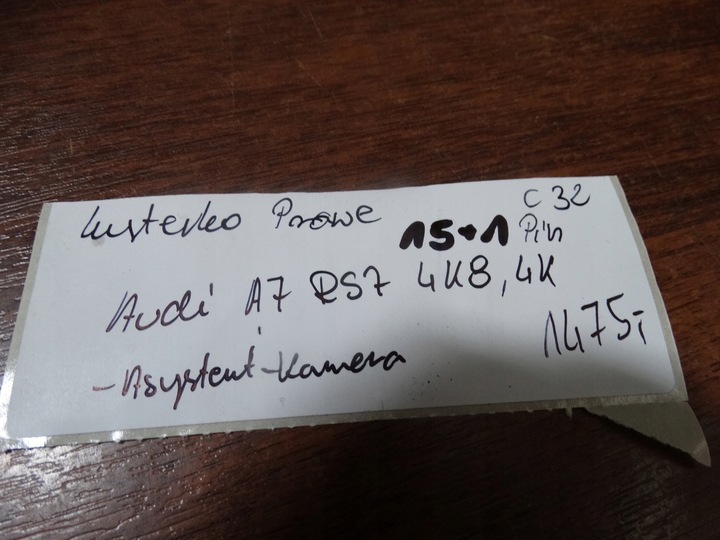 C 32
Lusterko Prawe 15+1 Pin
Audi A7 RS7 4K8, 4K
1475,-
- Asystent - Kamera